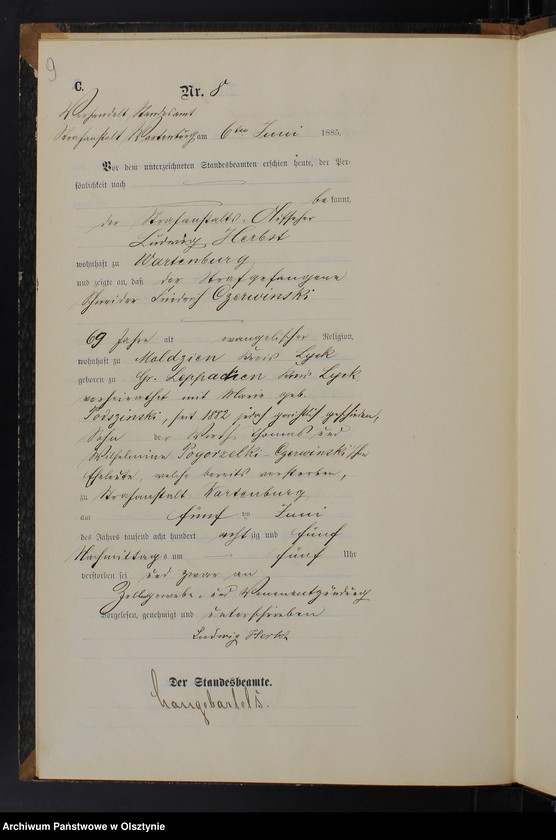 9
C.
Nr. 8
Standesamt
Strafanstalt Wartenburg, am 6ten Juni 1885.
Vor dem unterzeichneten Standesbeamten erschien heute, der Per-
sönlichkeit nach
bekannt,
der Strafanstalts-Aufseher
Ludwig Herbst
wohnhaft zu Wartenburg
und zeigte an, daß der Strafgefangene
Schneider Friedrich Czerwinski
69 Jahre alt evangelischer Religion,
wohnhaft zu Maldzien Kreis Lyck
geboren zu Gr. Kreis Lyck
verheirathet mit Marie geb.
seit 1882 jedoch gerichtlich geschieden,
Sohn der Wirth Thomas und
Wilhelmine Pogorzelki-Czerwinski'schen
Eheleute, welche bereits verstorben,
zu Strafanstalt Wartenburg
am fünf ten Juni
des Jahres tausend acht hundert achtzig und fünf
Nachmittags um fünf Uhr
verstorben sei und zwar an
Zellgewebs- und Venenentzündung
Vorgelesen, genehmigt und unterschrieben
Ludwig Herbst
Der Standesbeamte.
Langebartels.
Archiwum Państwowe w Olsztynie